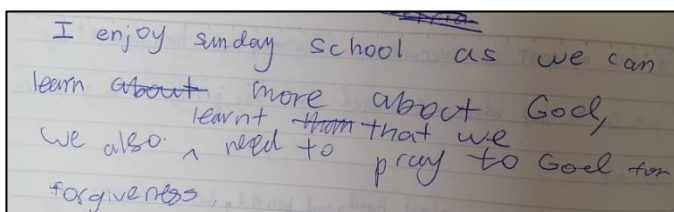 I enjoy sunday school as we can
learn about more about God,
learnt that we
we also ^ need to pray to God for
forgiveness